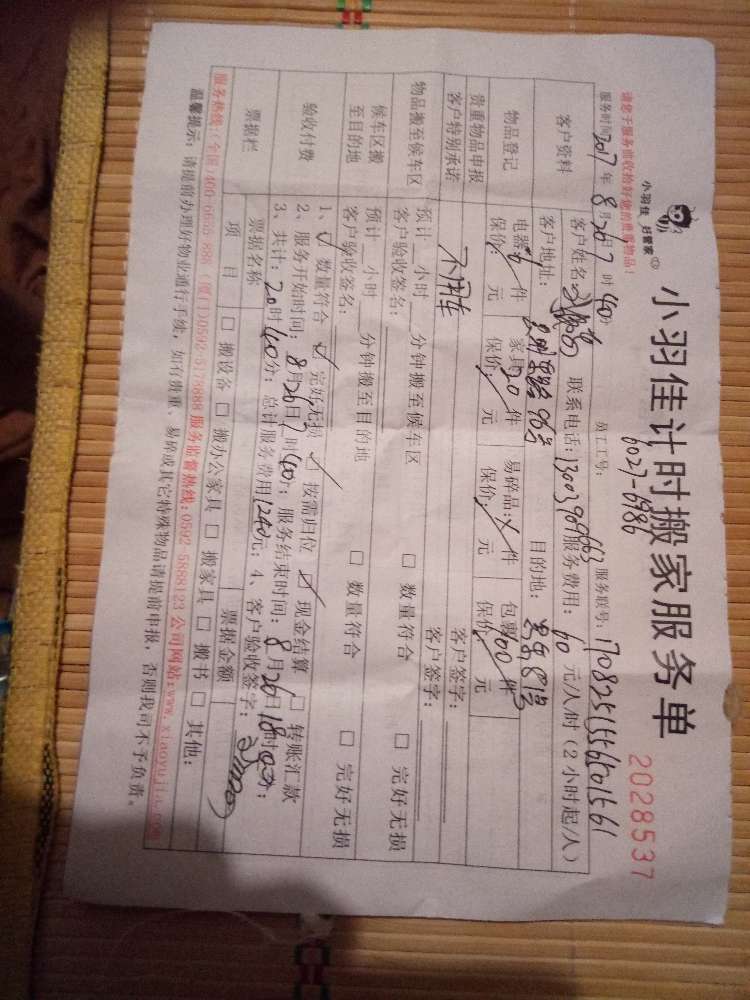 小羽佳 好管家
小羽佳计时搬家服务单
2028537
6027-6986
请您于服务前收拾好您的贵重物品!
服务时间 2017年8月26日7时40分 员工工号: 服务账号:
客户资料
客户姓名 联系电话: 服务费用: 60元/人/时(2小时起/人)
客户地址: 96号 目的地:
物品登记
电器 6件 家具 20件 易碎品: 件 包裹 100件
保价: 元 保价: 元 保价: 元 保价: 元
贵重物品申报
客户签字:
客户特别承诺
不用车
客户签字:
物品搬至候车区
预计 小时 分钟搬至候车区 □ 数量符合 □ 完好无损
客户验收签名:
候车区搬至目的地
预计 小时 分钟搬至目的地 □ 数量符合 □ 完好无损
客户验收签名:
验收付费
1、☑ 数量符合 ☑ 完好无损 ☑ 按需归位 ☑ 现金结算 □ 转账汇款
2、服务开始时间: 8月26日7时40分; 服务结束时间: 8月26日18时
3、共计: 20时40分; 总计服务费用1240元; 4、客户验收签字:
票据栏
票据名称 票据金额
项目 □ 搬设备 □ 搬办公家具 □ 搬家具 □ 搬书 □ 其他:
服务热线:(全国)400-6655-888 (厦门)0592-5178888 服务监督热线: 0592-5888123 公司网站: www.xiaoyujia.com
温馨提示: 请提前办理好物业通行手续, 如有贵重、易碎或其它特殊物品请提前申报, 否则我司不予负责。